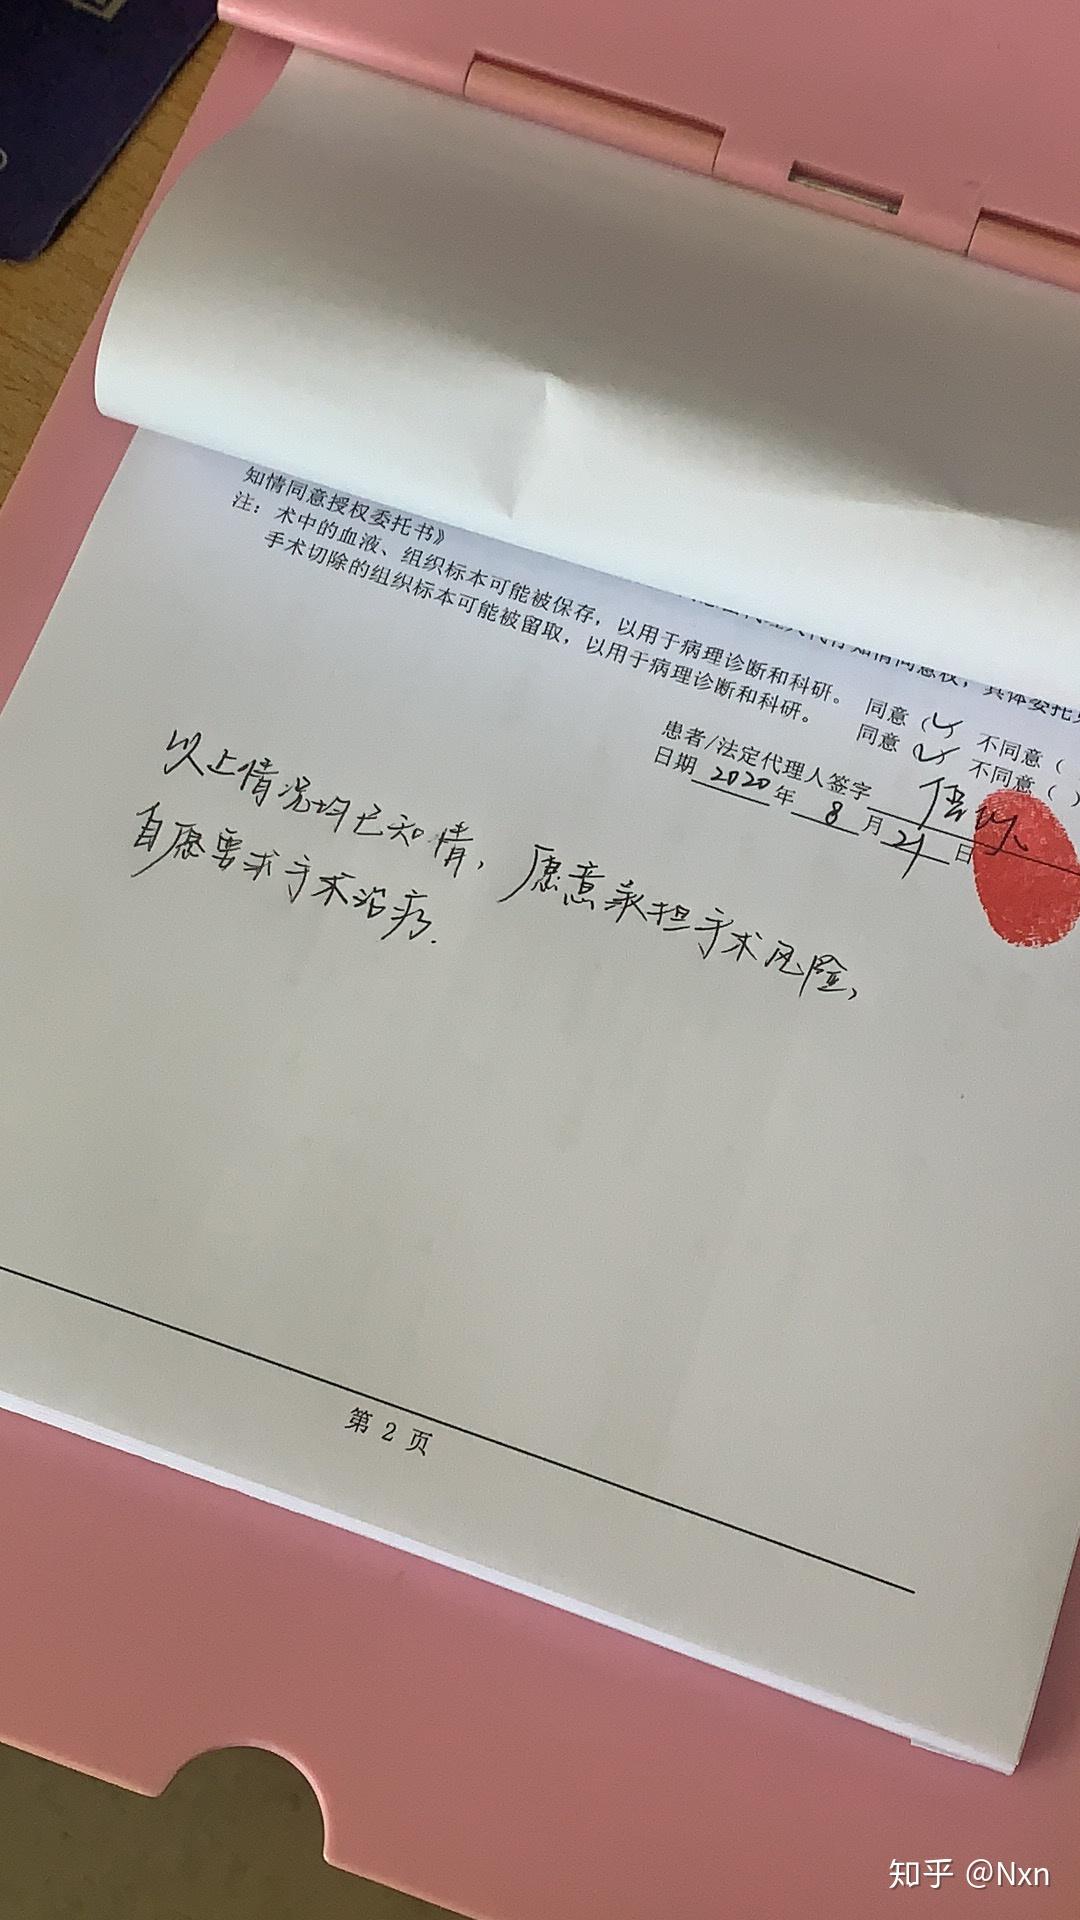 知情同意授权委托书》
注：术中的血液、组织标本可能被保存，以用于病理诊断和科研。 同意（✓ 不同意（
手术切除的组织标本可能被留取，以用于病理诊断和科研。 同意 ✓ 不同意（ ）
患者/法定代理人签字
日期 2020 年 8 月 21 日
以上情况均已知情，愿意承担手术风险，
自愿要求手术治疗.
第 2 页
知乎 @Nxn